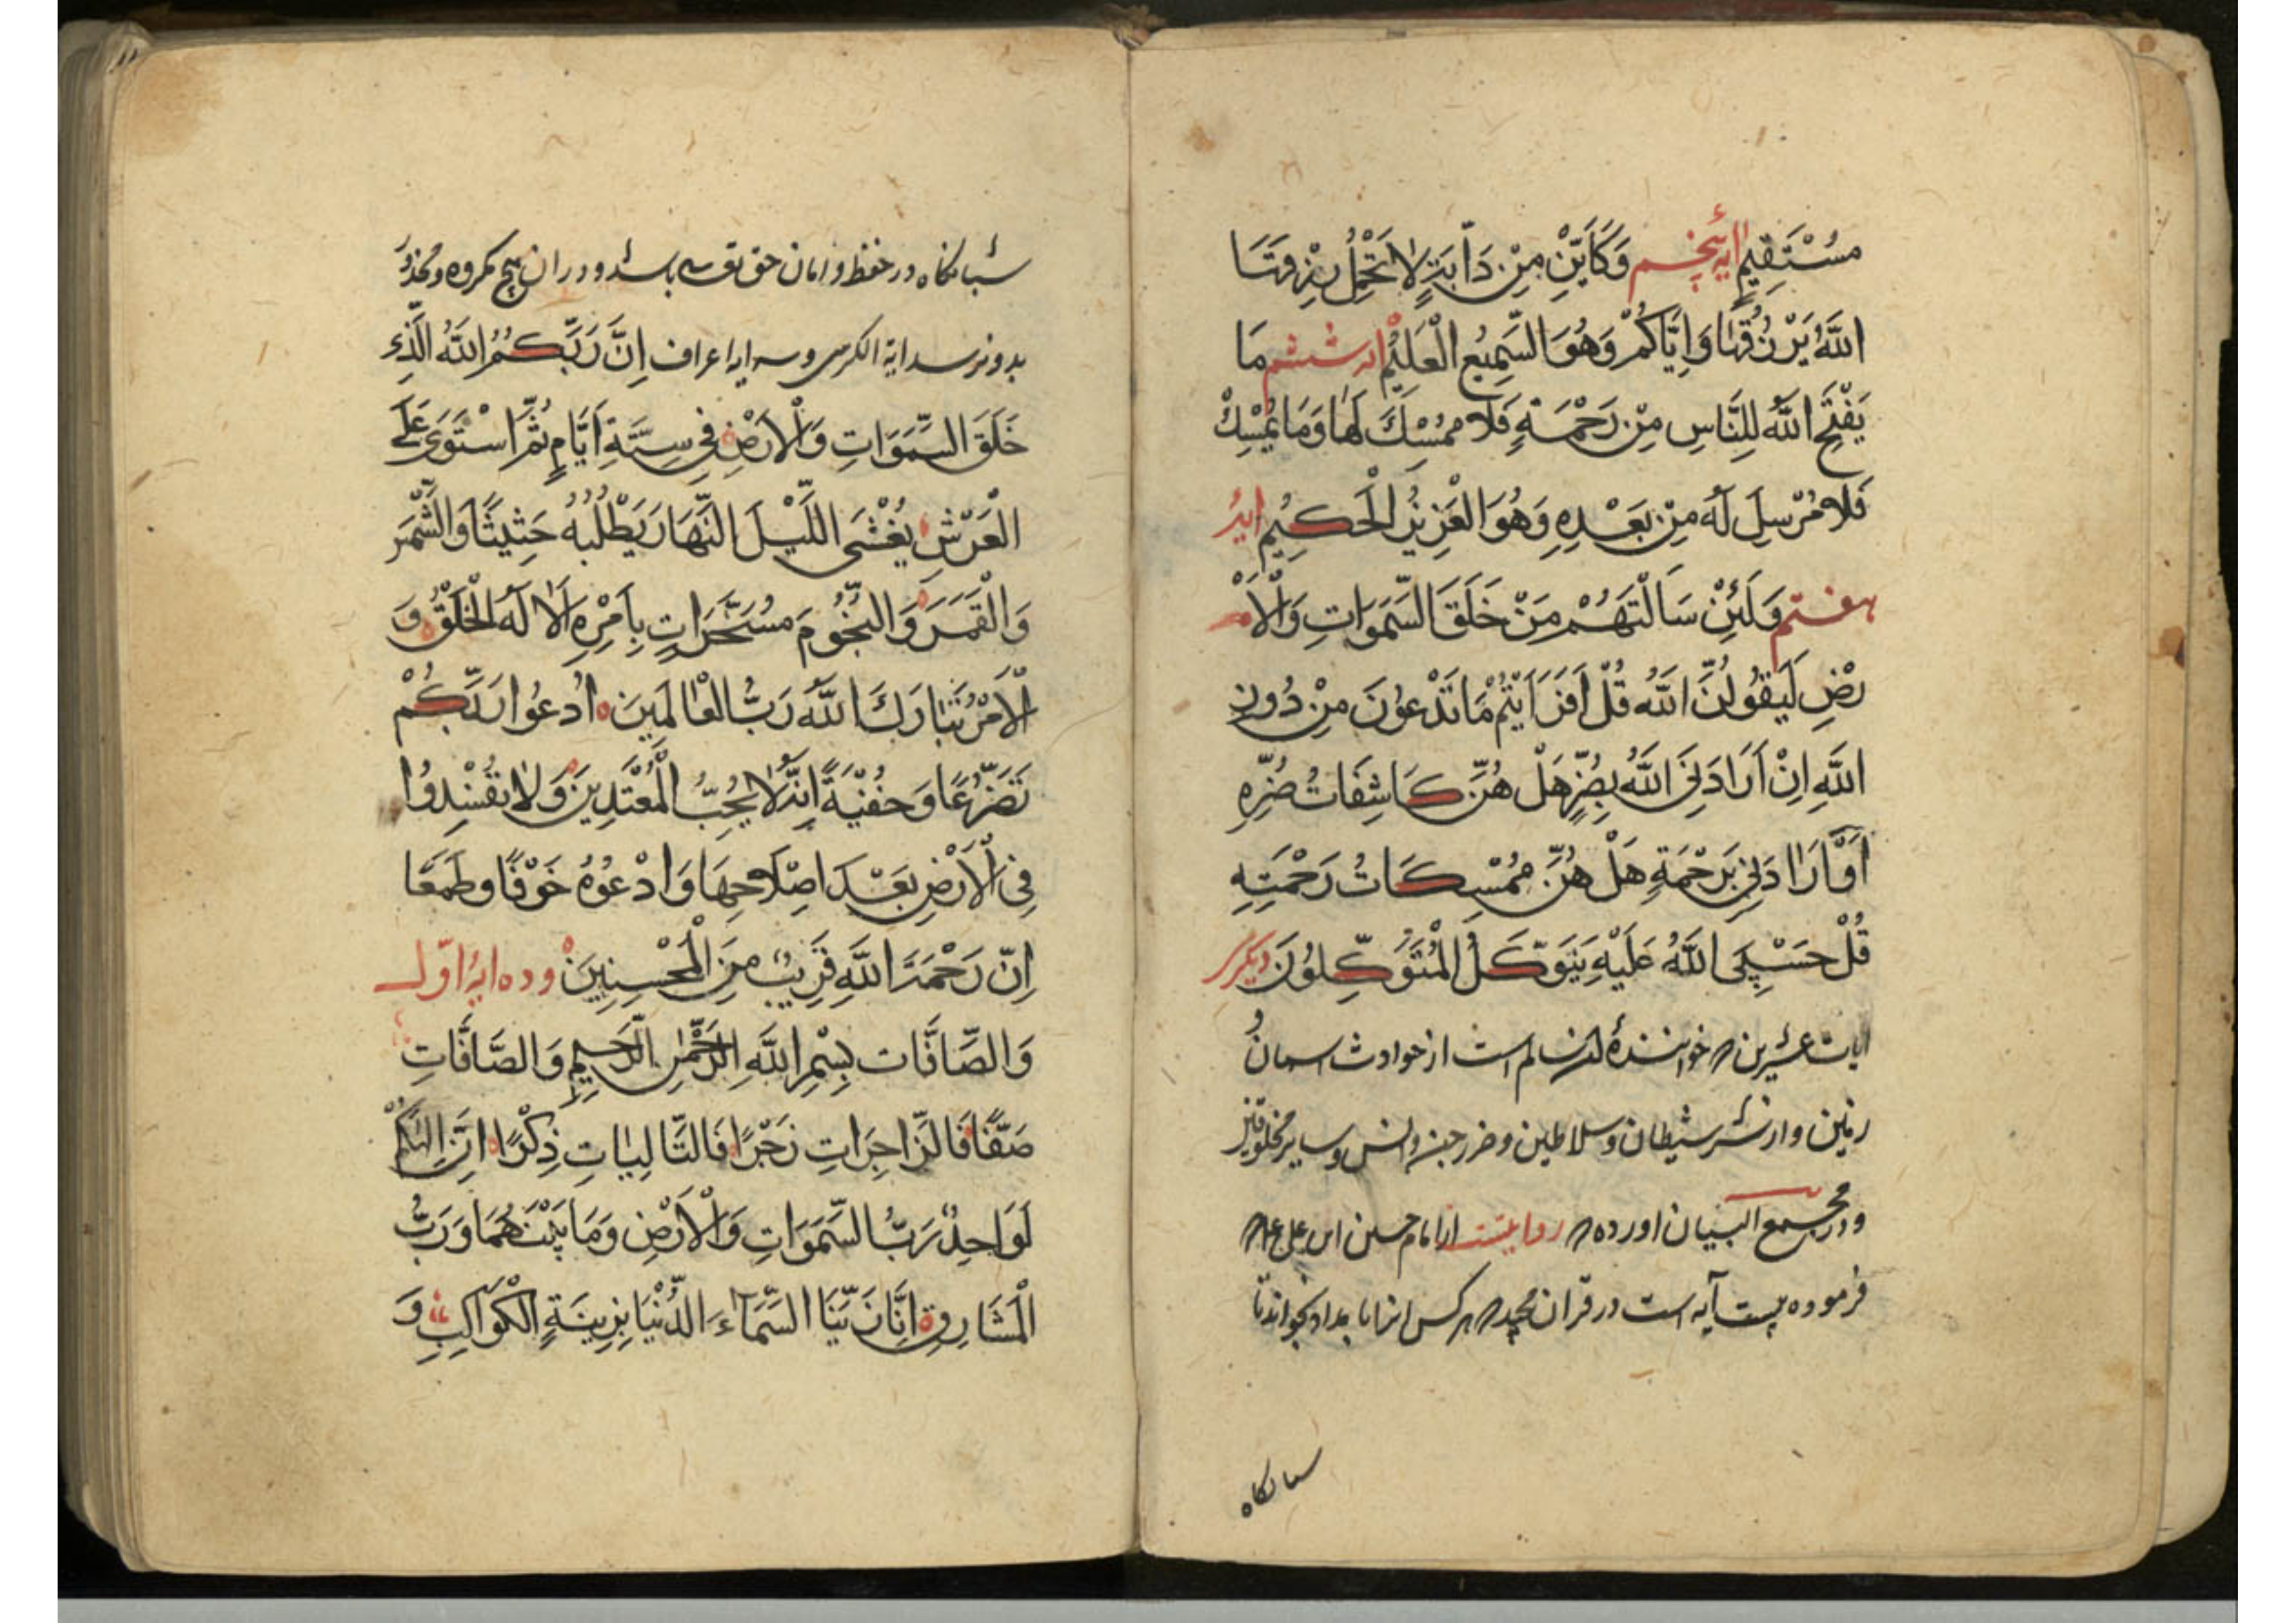 مُسْتَقِيمٍ ایه پنجم وَكَأَيِّنْ مِنْ دَآبَّةٍ لَا تَحْمِلُ رِزْقَهَا
اللَّهُ يَرْزُقُهَا وَإِيَّاكُمْ وَهُوَ السَّمِيعُ الْعَلِيمُ ایه ششم مَا
يَفْتَحِ اللَّهُ لِلنَّاسِ مِنْ رَحْمَةٍ فَلَا مُمْسِكَ لَهَا وَمَا يُمْسِكْ
فَلَا مُرْسِلَ لَهُ مِنْ بَعْدِهِ وَهُوَ الْعَزِيزُ الْحَكِيمُ ایهٔ
هفتم وَلَئِنْ سَأَلْتَهُمْ مَنْ خَلَقَ السَّمَوَاتِ وَالْأَ
رْضِ لَيَقُولُنَّ اللَّهُ قُلْ أَفَرَأَيْتُمْ مَا تَدْعُونَ مِنْ دُونِ
اللَّهِ إِنْ أَرَادَنِيَ اللَّهُ بِضُرٍّ هَلْ هُنَّ كَاشِفَاتُ ضُرِّهِ
أَوْ أَرَادَنِي بِرَحْمَةٍ هَلْ هُنَّ مُمْسِكَاتُ رَحْمَتِهِ
قُلْ حَسْبِيَ اللَّهُ عَلَيْهِ يَتَوَكَّلُ الْمُتَوَكِّلُونَ دیگر
ایات عشرین خوانندهٔ سالم است از حوادث اسمان
زمین و از شر شیطان و سلاطین و ضرر جن و انس و سایر
و در مجمع البیان اورده روایتست از امام حسن ابن علی
فرموده بیست آیه است در قران مجید هر کس انرا بامداد بخواند تا
شبانگاه
شبانگاه در حفظ و امان حق تعالی باشد و در ان هیچ مکروه و محذور
بدو نرسد ایة الکرسی و سه ایه اعراف إِنَّ رَبَّكُمُ اللَّهُ الَّذِي
خَلَقَ السَّمَوَاتِ وَالْأَرْضَ فِي سِتَّةِ أَيَّامٍ ثُمَّ اسْتَوَى عَلَى
الْعَرْشِ يُغْشِي اللَّيْلَ النَّهَارَ يَطْلُبُهُ حَثِيثًا وَالشَّمْسَ
وَالْقَمَرَ وَالنُّجُومَ مُسَخَّرَاتٍ بِأَمْرِهِ أَلَا لَهُ الْخَلْقُ وَ
الْأَمْرُ تَبَارَكَ اللَّهُ رَبُّ الْعَالَمِينَ ادْعُوا رَبَّكُمْ
تَضَرُّعًا وَخُفْيَةً إِنَّهُ لَا يُحِبُّ الْمُعْتَدِينَ وَلَا تُفْسِدُوا
فِي الْأَرْضِ بَعْدَ إِصْلَاحِهَا وَادْعُوهُ خَوْفًا وَطَمَعًا
إِنَّ رَحْمَةَ اللَّهِ قَرِيبٌ مِنَ الْمُحْسِنِينَ و ده ایهٔ اوّل
وَالصَّافَّات بِسْمِ اللَّهِ الرَّحْمَنِ الرَّحِيمِ وَالصَّافَّاتِ
صَفًّا فَالزَّاجِرَاتِ زَجْرًا فَالتَّالِيَاتِ ذِكْرًا إِنَّ إِلَهَكُمْ
لَوَاحِدٌ رَبُّ السَّمَوَاتِ وَالْأَرْضِ وَمَا بَيْنَهُمَا وَرَبُّ
الْمَشَارِقِ إِنَّا زَيَّنَّا السَّمَاءَ الدُّنْيَا بِزِينَةٍ الْكَوَاكِبِ وَ